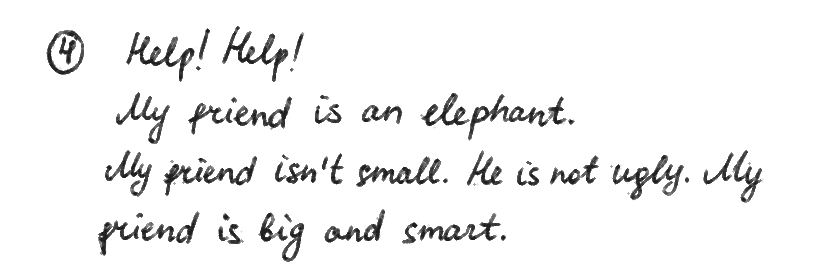 ④ Help! Help!
My friend is an elephant.
My friend isn't small. He is not ugly. My
friend is big and smart.